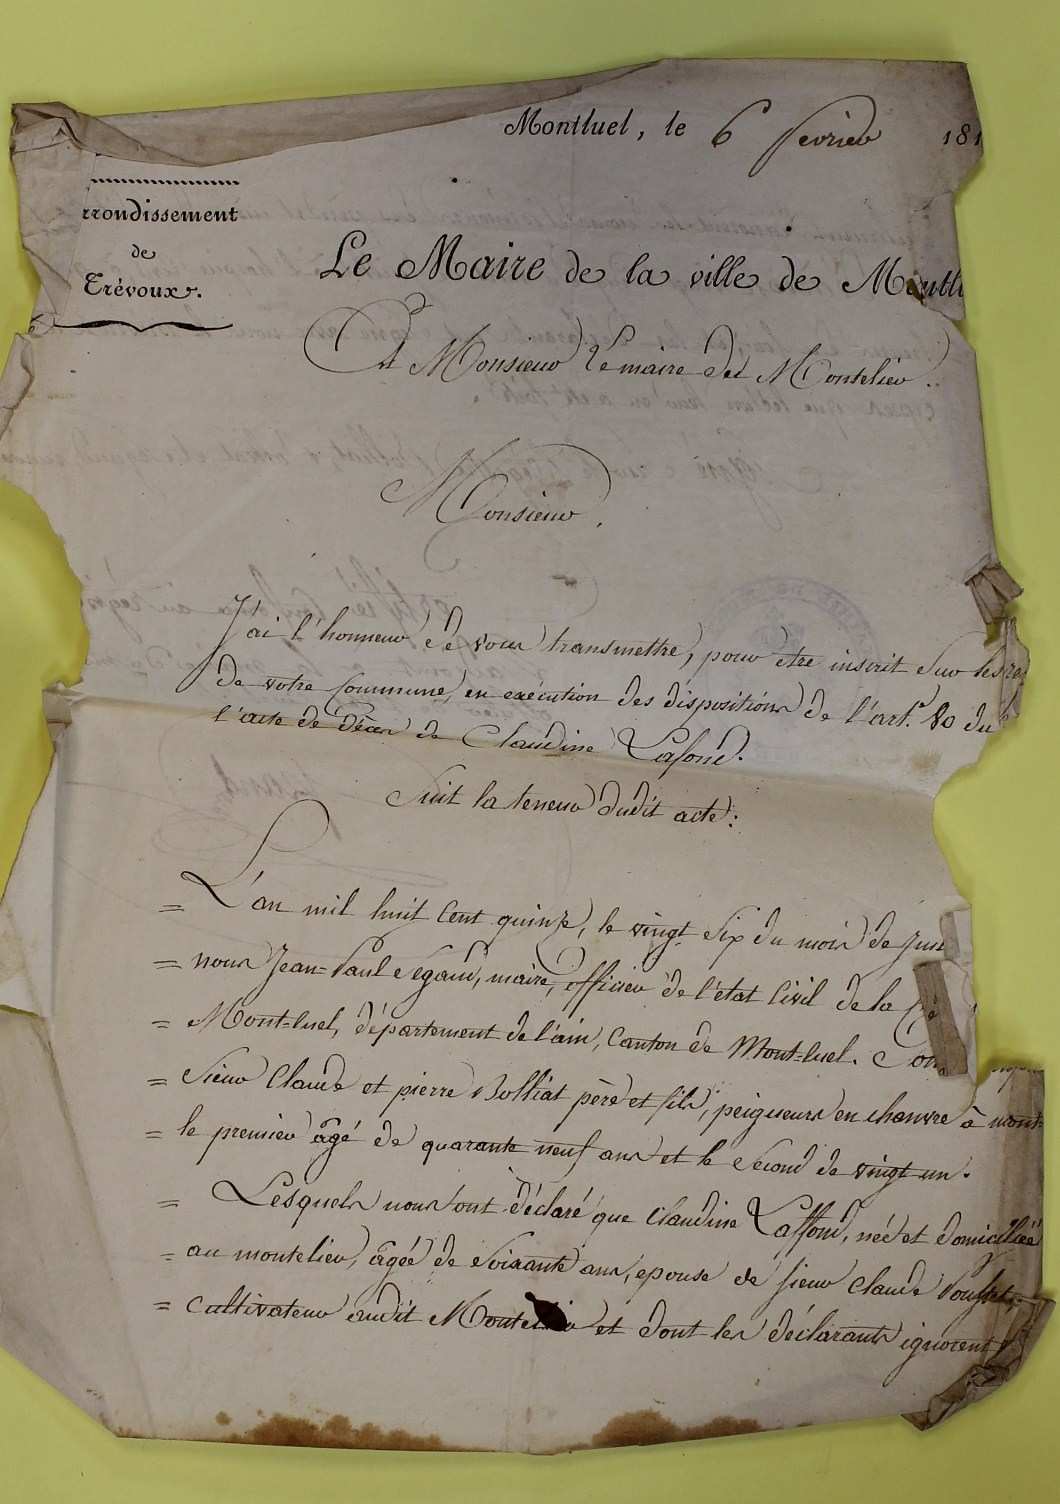 Montluel, le 6 fevrier 181
rrondissement
de
Trévoux.
Le Maire de la ville de Montl
A Monsieur le maire de Montelier.
Monsieur,
J'ai l'honneur de vous transmettre, pour etre inscrit sur les re
de votre Commune, en exécution des dispositions de l'art. 80 du
l'acte de Décès de Claudine Lafond.
Suit la teneur dudit acte:
= L'an mil huit Cent quinze, le vingt Six du mois de
= nous Jean=Paul Segaud, maire, officier de l'état Civil de la
= Mont=luel, département de l'ain, Canton de Mont=luel.
= Sieur Claude et pierre Bolliat père et fils, peigneurs en chanvre à mont=
= le premier âgé de quarante neuf ans et le Second de vingt un.
= Lesquels nous ont déclaré que Claudine Laffond, née et domiciliée
= au montelier, âgée de Soixante ans, epouse de sieur Claude
= cultivateur audit et dont les déclarants ignorent